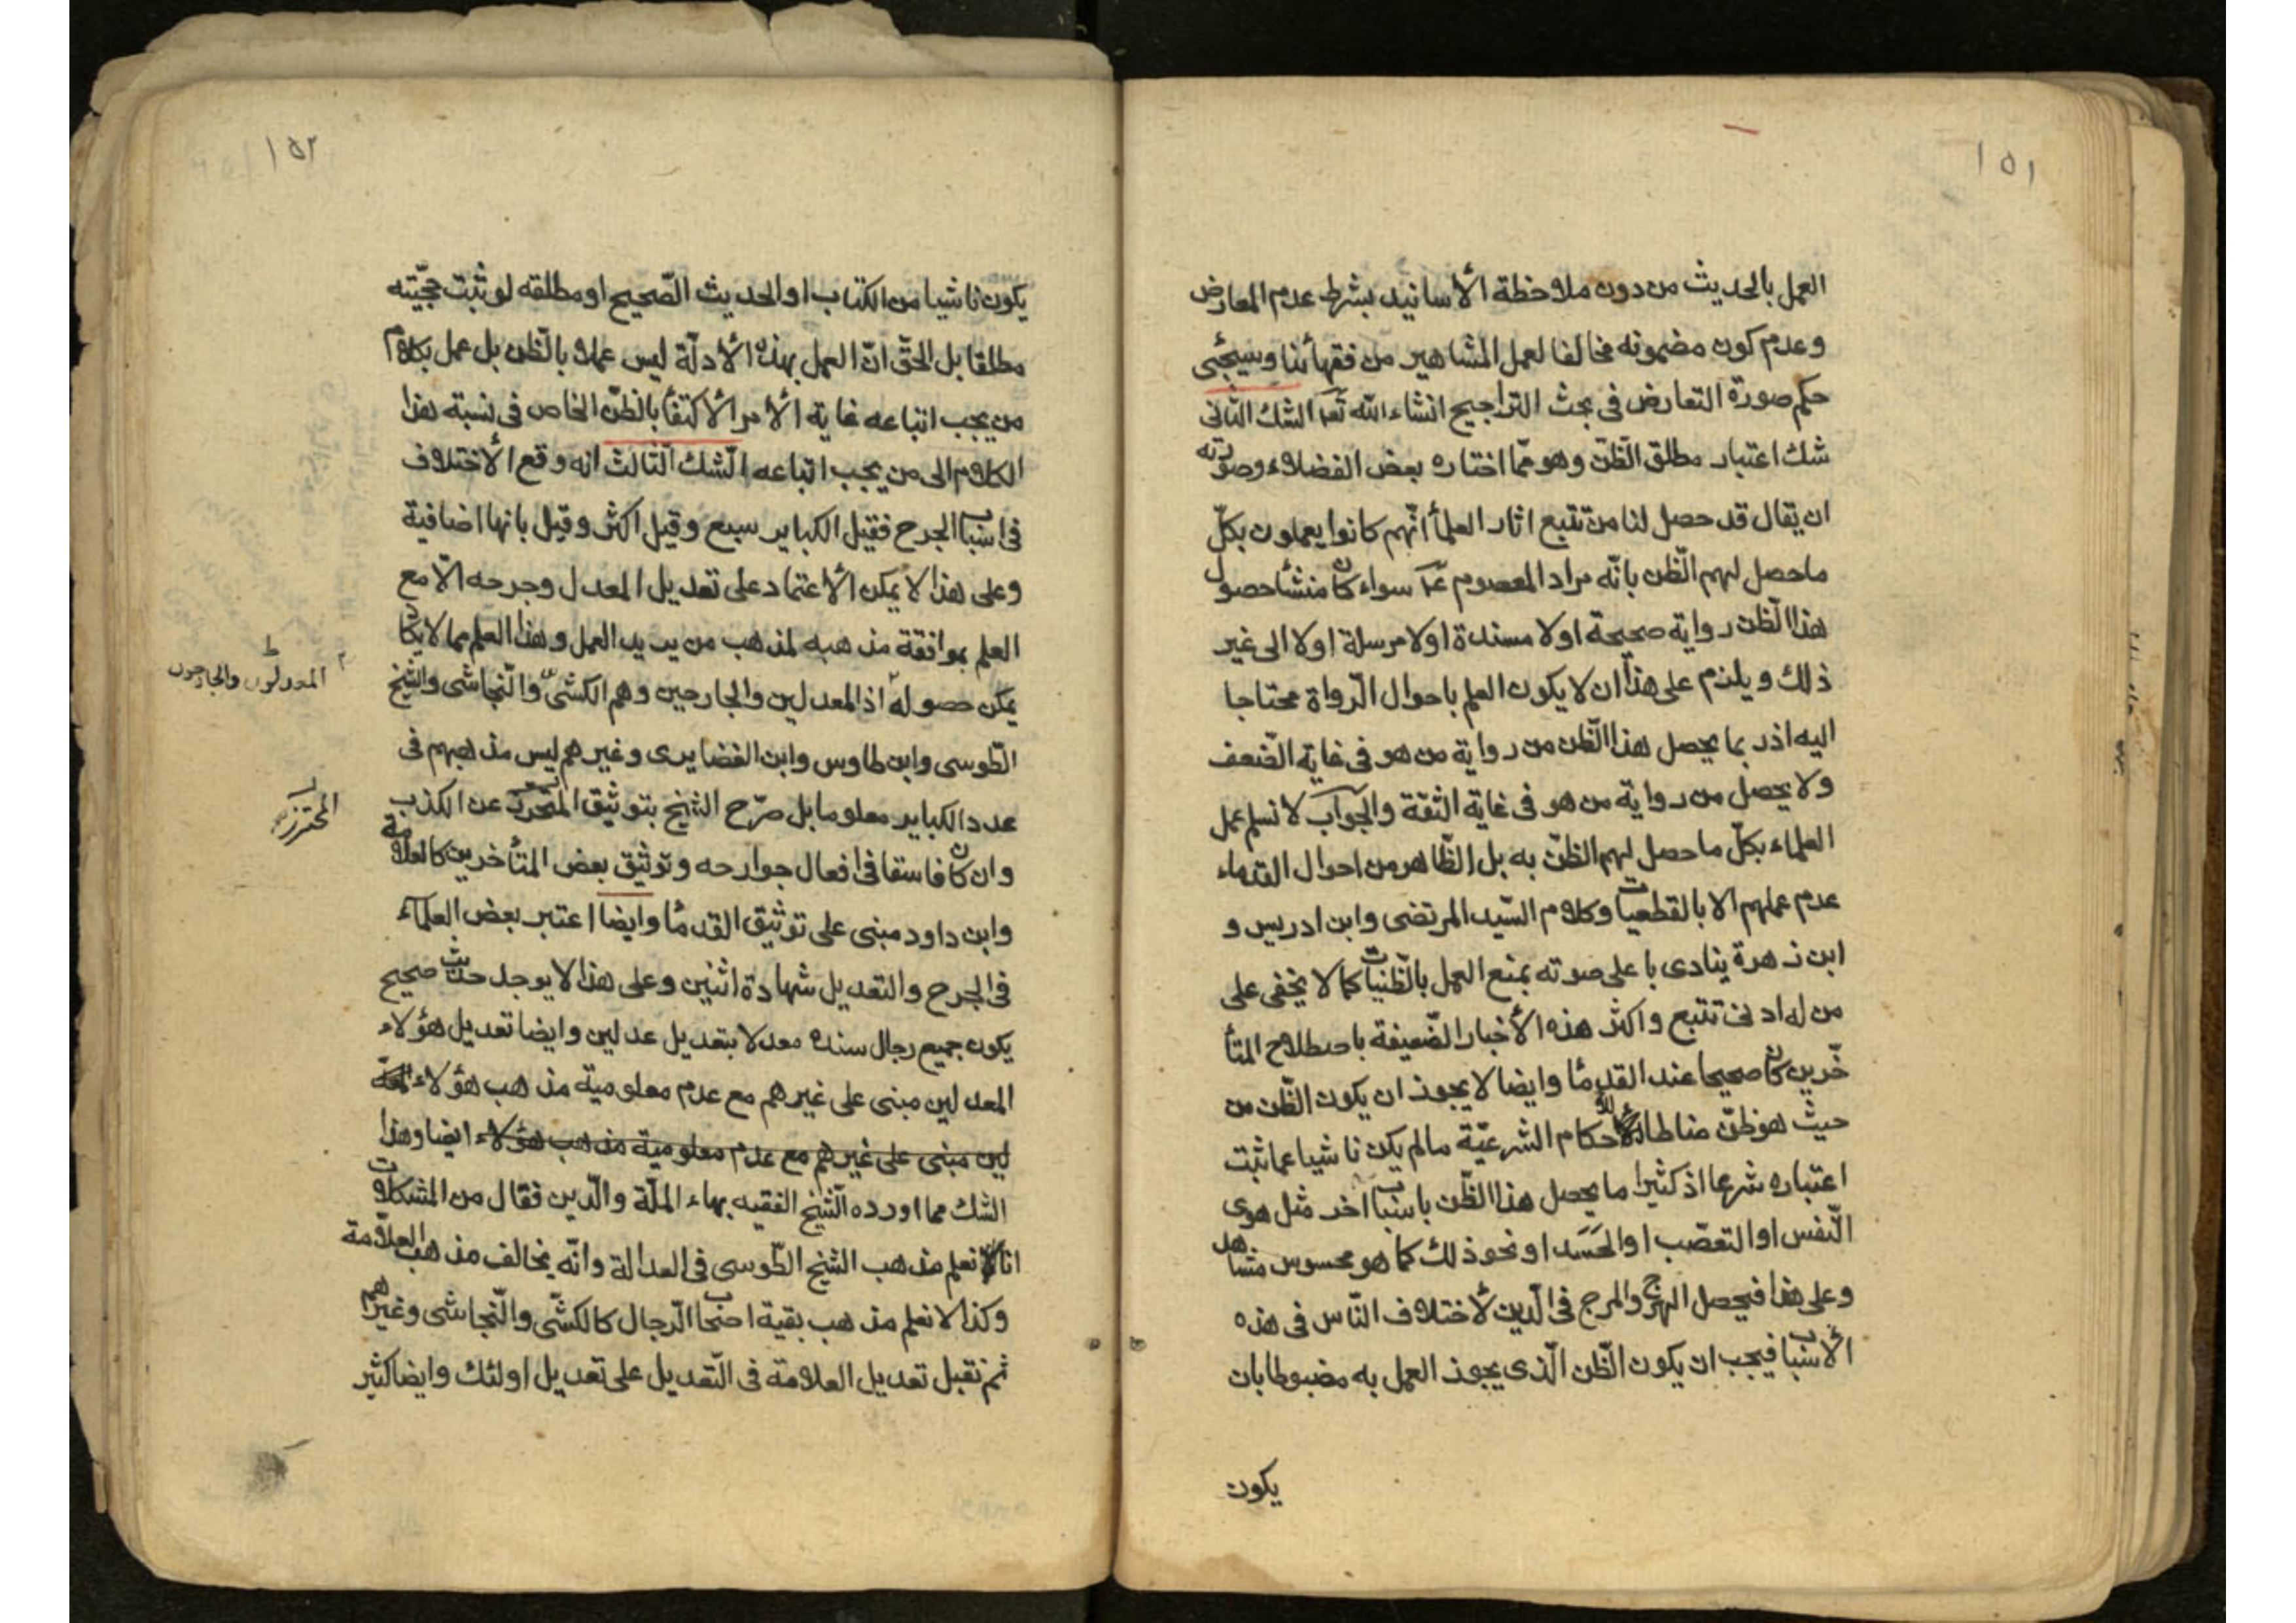 ١٥١
العمل بالحديث من دون ملاحظة الأسانيد بشرط عدم المعارض
وعدم كون مضمونه مخالفا لعمل المشاهير من فقهائنا وسيجئ
حكم صورة التعارض فى بحث التراجيح انشاء الله تعا الشك الثانى
شك اعتبار مطلق الظن وهو ممّا اختاره بعض الفضلاء وصورته
ان يقال قد حصل لنا من تتبع اثار العلمأ انّهم كانوا يعملون بكلّ
ما حصل لهم الظن بانّه مراد المعصوم عم سواء كان منشأ حصول
هذا الظن رواية صحيحة او لا مسندة او لا مرسلة او لا الى غير
ذلك ويلزم على هذا ان لا يكون العلم باحوال الرواة محتاجا
اليه اذ ربما يحصل هذا الظن من رواية من هو فى غاية الضعف
ولا يحصل من رواية من هو فى غاية الثقة والجواب لا نسلم عمل
العلماء بكلّ ما حصل لهم الظنّ به بل الظاهر من احوال القدماء
عدم عملهم الا بالقطعيات وكلام السّيد المرتضى وابن ادريس و
ابن زهرة ينادى باعلى صوته بمنع العمل بالظنيات كما لا يخفى على
من له ادنى تتبع واكثر هذه الأخبار الضّعيفة باصطلاح المتأ
خّرين كان صحيحا عند القدمأ وايضا لا يجوز ان يكون الظّن من
حيث هو ظنّ مناطا للأحكام الشرعيّة ما لم يكن ناشيا عما ثبت
اعتباره شرعا اذ كثيرا ما يحصل هذا الظّن باسباب اخر مثل هوى
النّفس او التعصّب او الحَسَد او نحو ذلك كما هو محسوس مشاهد
وعلى هذا فيحصل الهرج والمرج فى الّدين لأختلاف النّاس فى هذه
الأسباب فيجب ان يكون الظّن الّذى يجوز العمل به مضبوطا بان
يكون
١٥٢
يكون ناشيا من الكتاب او الحديث الصّحيح او مطلقه لو ثبت حجّيته
مطلقا بل الحقّ انّ العمل بهذه الأدلّة ليس عملا بالظن بل عمل بكلام
من يجب اتباعه غاية الأمر الأكتفأ بالظنّ الخاص فى نسبة هذا
الكلام الى من يجب اتباعه الشك الثالث انه وقع الأختلاف
فى اسباب الجرح فقيل الكباير سبع وقيل اكثر وقيل بانها اضافية
وعلى هذا لا يمكن الأعتماد على تعديل المعدل وجرحه الّا مع
العلم بموافقة مذهبه لمذهب من يريد العمل وهذا العلم مما لا يكاد
يمكن حصوله اذ المعدلين والجارحين وهم الكشىّ والنّجاشى والشيخ
المعدلون والجارحون
الطوسى وابن طاوس وابن الغضايرى وغيرهم ليس مذهبهم فى
عدد الكباير معلوما بل صرّح الشيخ بتوثيق المتحرّز عن الكذب
المحترز
وان كان فاسقا فى افعال جوارحه وتوثيق بعض المتأخرين كالعلامة
وابن داود مبنى على توثيق القدمأ وايضا اعتبر بعض العلمآء
فى الجرح والتعديل شهادة اثنين وعلى هذا لا يوجد حديث صحيح
يكون جميع رجال سنده معدلا بتعديل عدلين وايضا تعديل هؤلاء
المعدلين مبنى على غيرهم مع عدم معلومية مذهب هؤلاء
لين مبنى على غيرهم مع عدم معلومية مذهب هؤلاء ايضا وهذا
الشك مما اورده الشيخ الفقيه بهاء الملّة والّدين فقال من المشكلات
انا لا نعلم مذهب الشيخ الطّوسى فى العدالة وانّه يخالف مذهب العلاّمة
وكذا لا نعلم مذهب بقية اصحاب الرجال كالكشّى والنّجاشى وغيرهم
ثم نقبل تعديل العلامة فى التّعديل على تعديل اولئك وايضا كثير